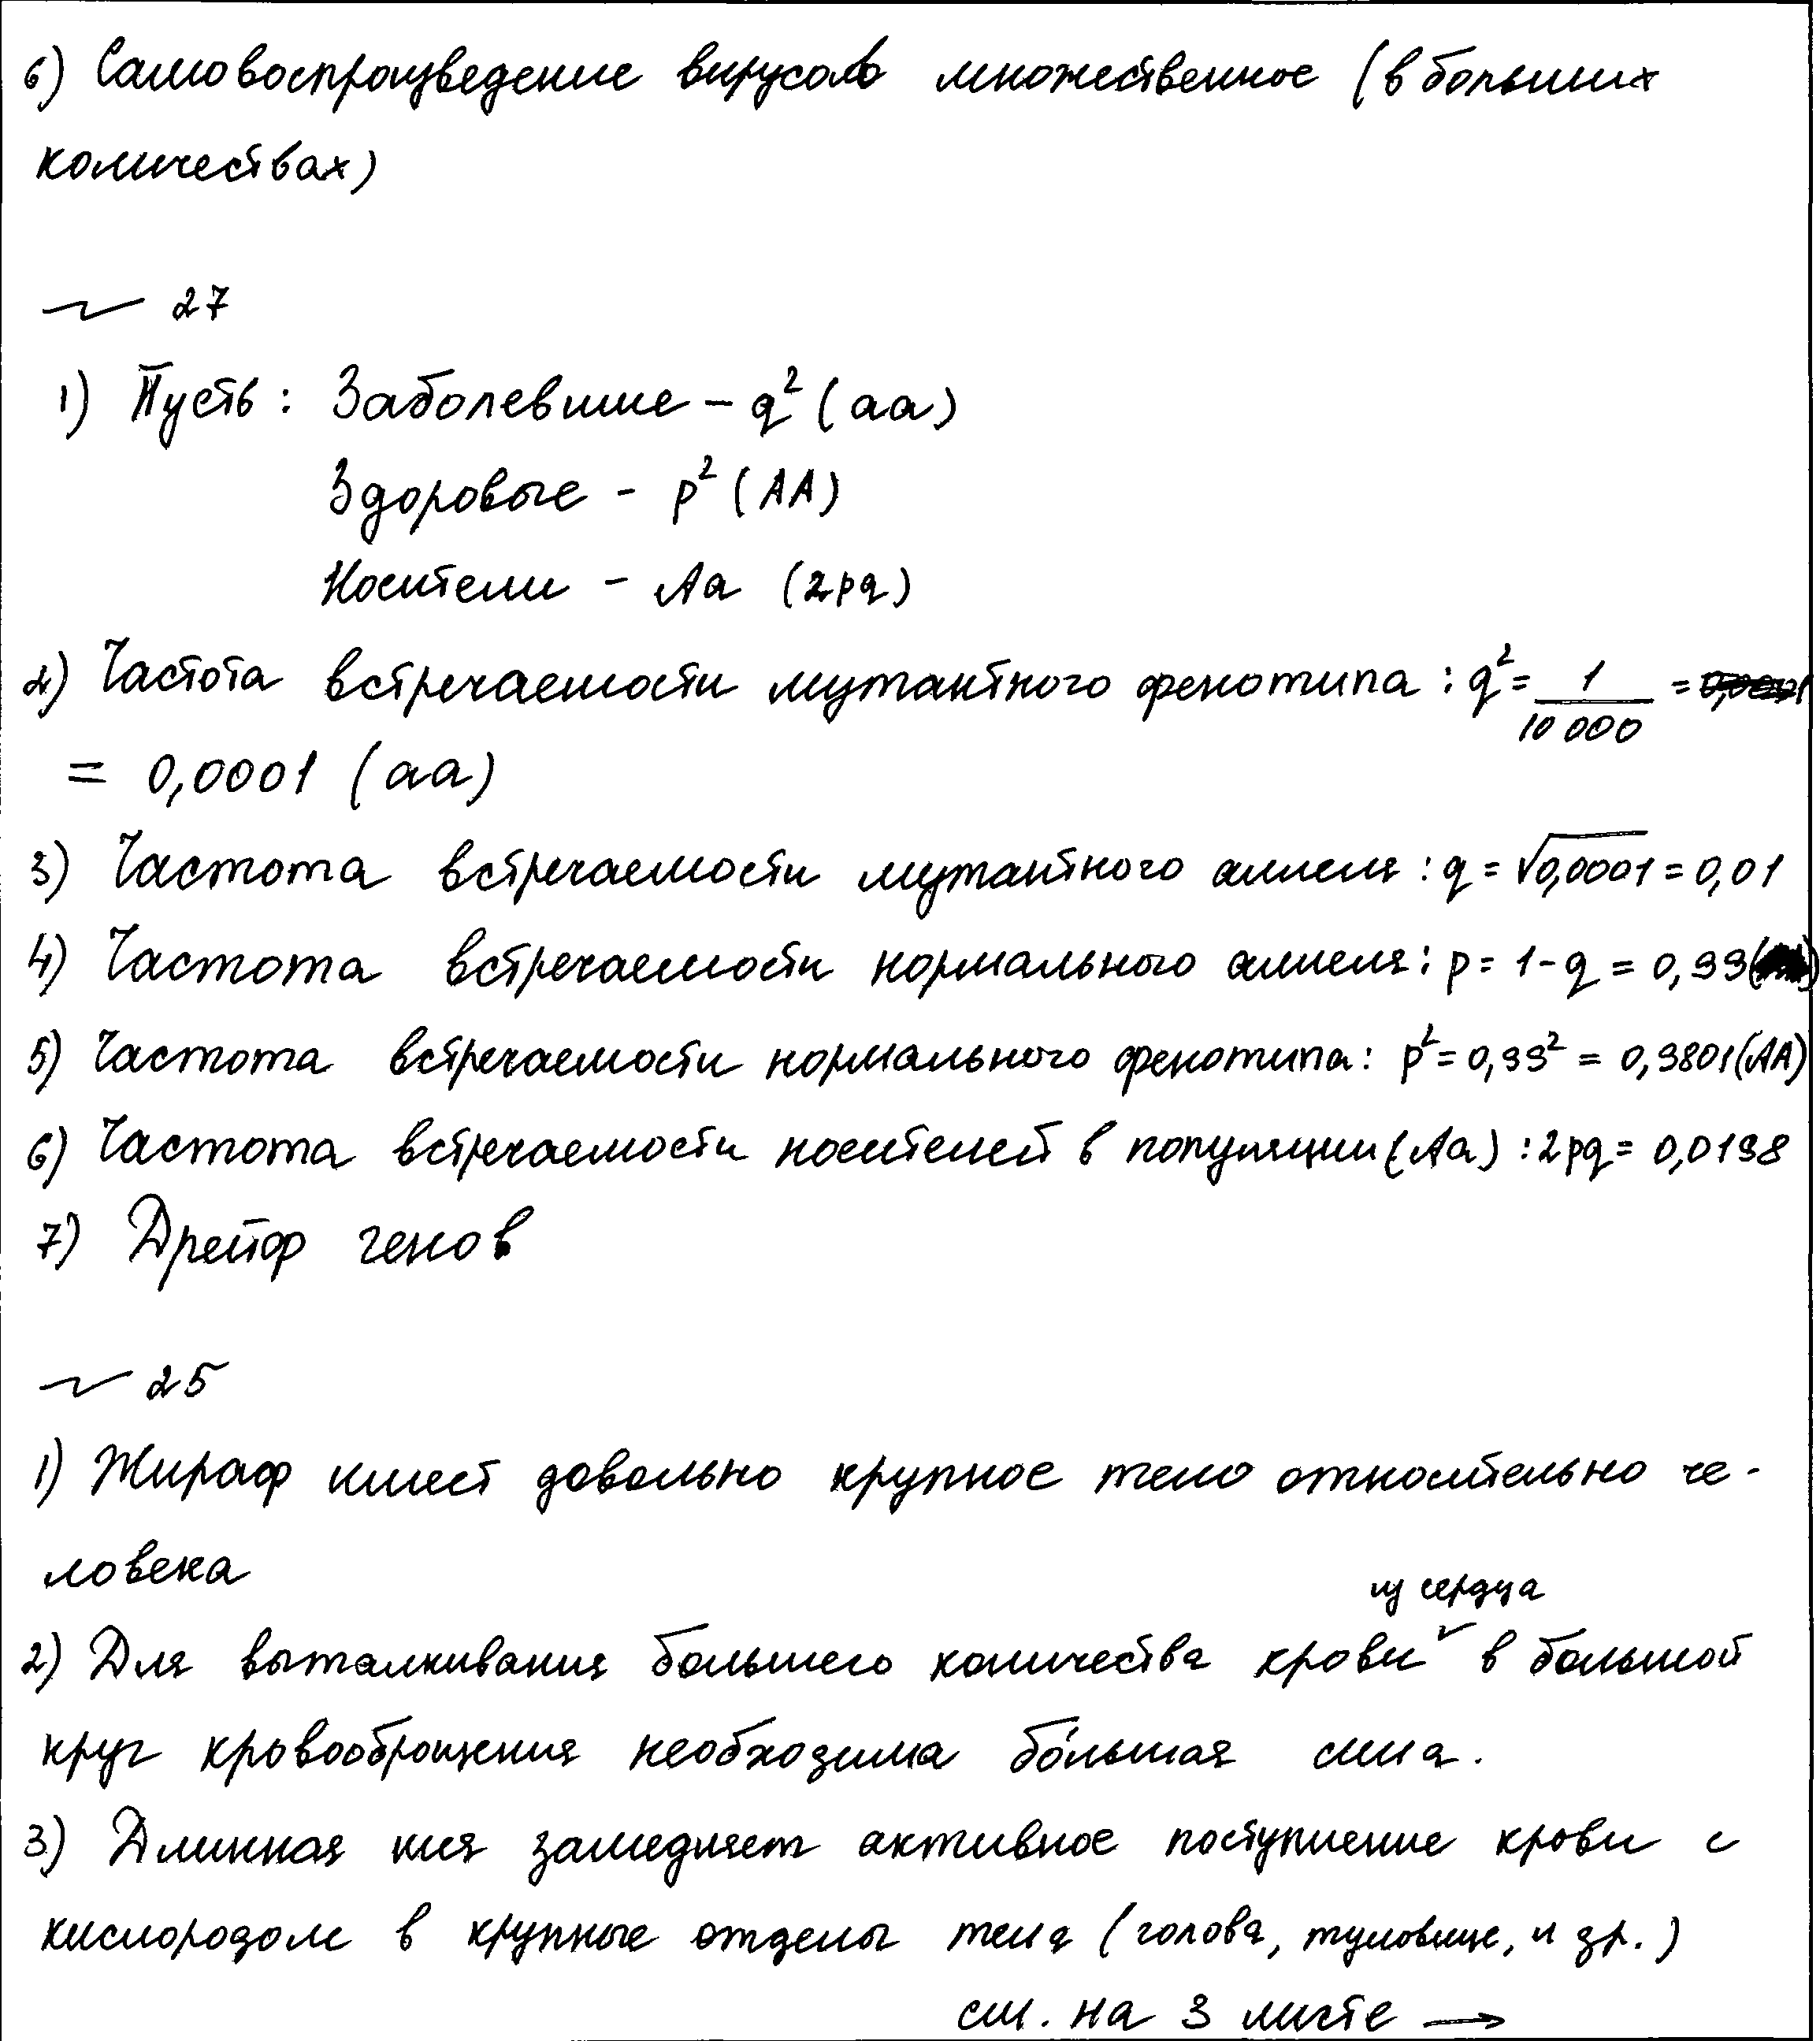 6) Самовоспроизведение вирусов множественное (в больших
количествах)
~ 27
1) Пусть: Заболевшие – q² (aa)
Здоровые - p² (AA)
Носители - Aa (2pq)
2) Частота встречаемости мутантного фенотипа: q² = 1/10 000 =
= 0,0001 (aa)
3) Частота встречаемости мутантного аллеля: q = √0,0001 = 0,01
4) Частота встречаемости нормального аллеля: p = 1 - q = 0,99
5) Частота встречаемости нормального фенотипа: p² = 0,99² = 0,9801 (AA)
6) Частота встречаемости носителей в популяции (Aa): 2pq = 0,0198
7) Дрейф генов
~ 25
1) Жираф имеет довольно крупное тело относительно че-
ловека
из сердца
2) Для выталкивания большего количества крови ✓ в большой
круг кровообращения необходима бо́льшая сила.
3) Длинная шея замедляет активное поступление крови с
кислородом в крупные отделы тела (голова, туловище, и др.)
см. на 3 листе →